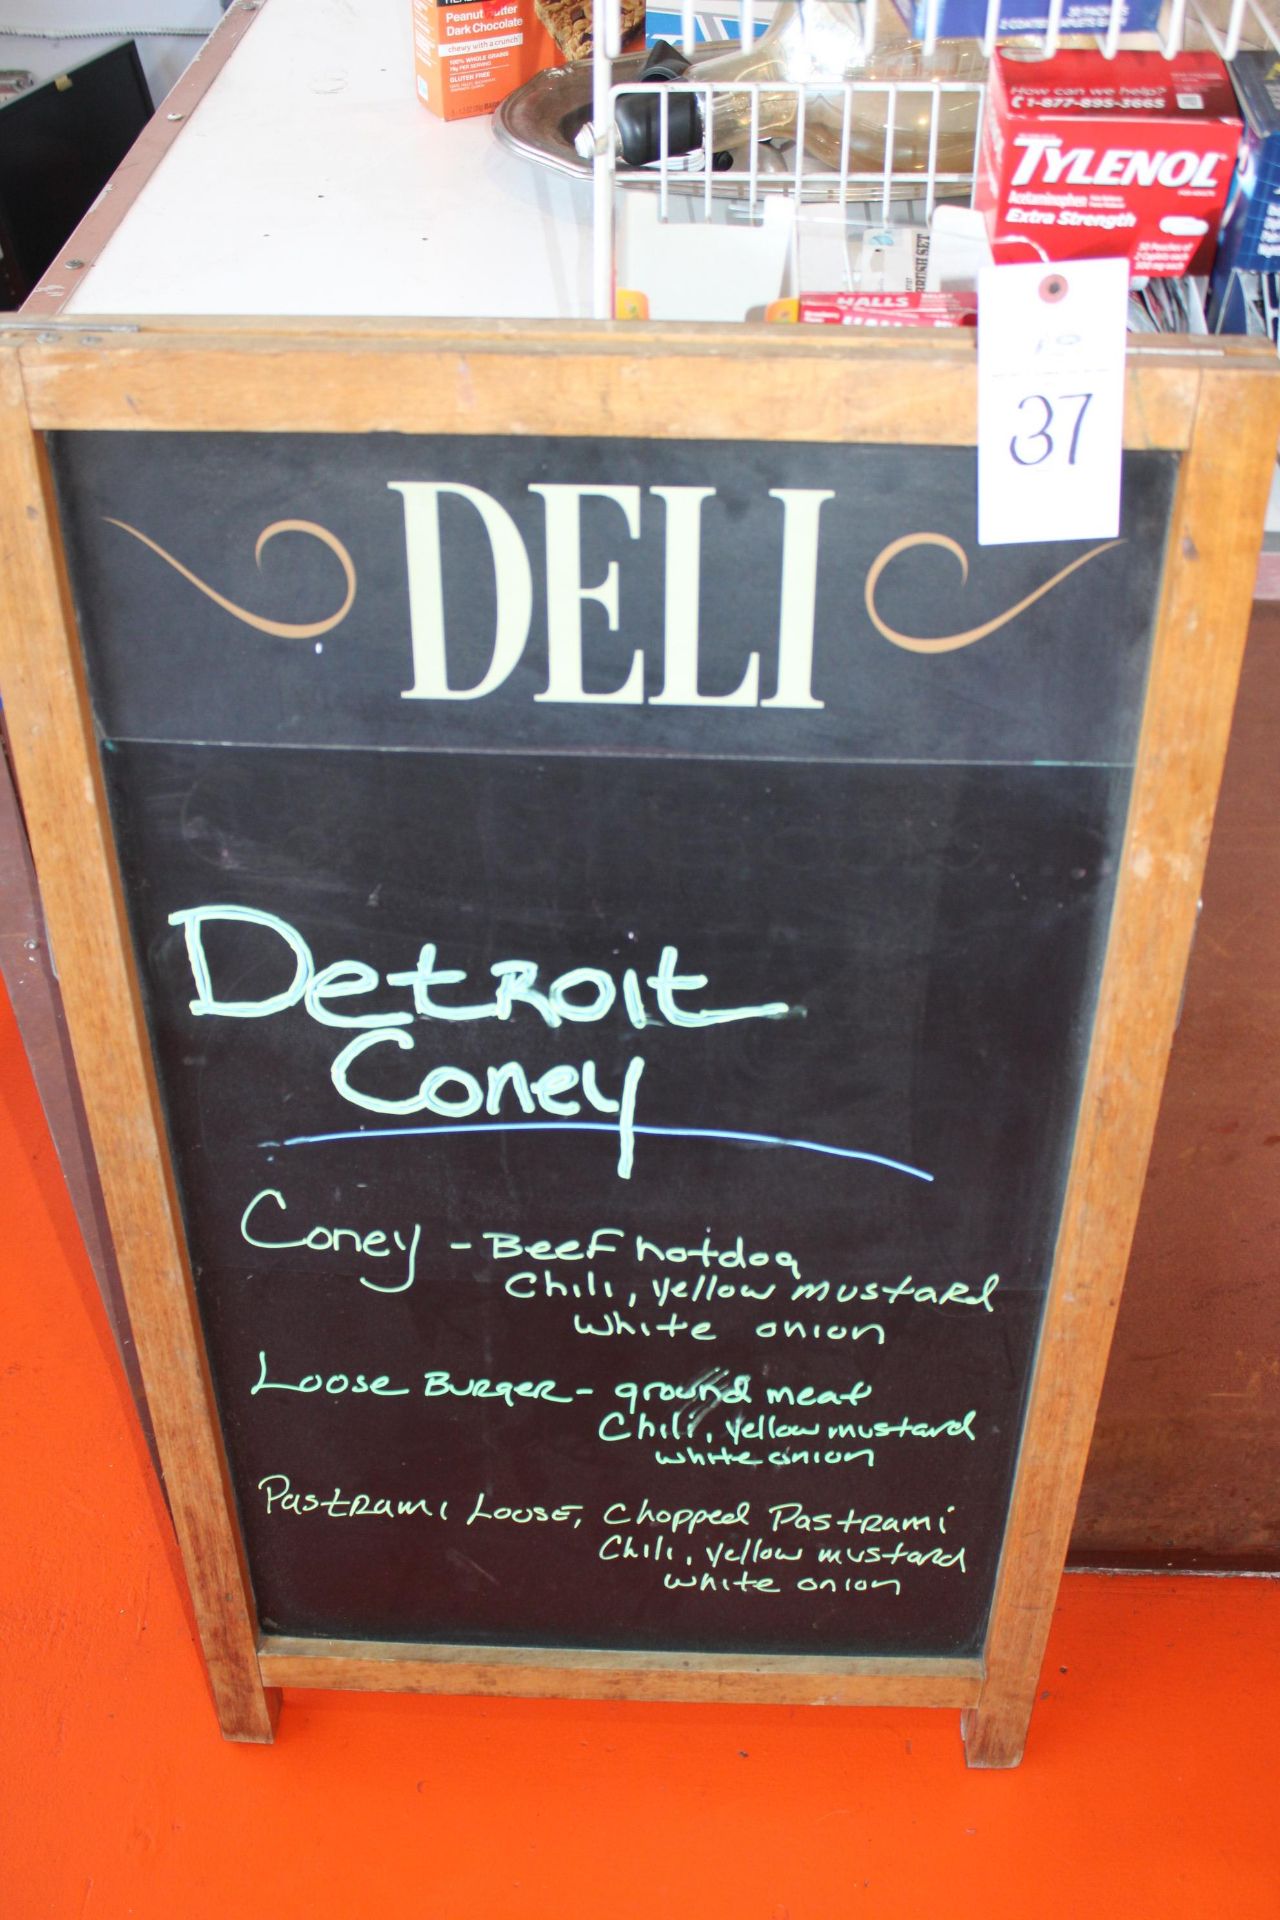 Peanut Butter
Dark Chocolate
chewy with a crunch
100% WHOLE GRAINS
GLUTEN FREE
How can we help?
1-877-895-3665
TYLENOL
Acetaminophen
Extra Strength
30 Pouches of
2 Caplets each
500 mg each
BRUSH SET
HALLS
37
DELI
Detroit
Coney
Coney - Beef hotdog
Chili, yellow mustard
white onion
Loose Burger - ground meat
Chili, yellow mustard
white onion
Pastrami Loose, Chopped Pastrami
Chili, yellow mustard
white onion